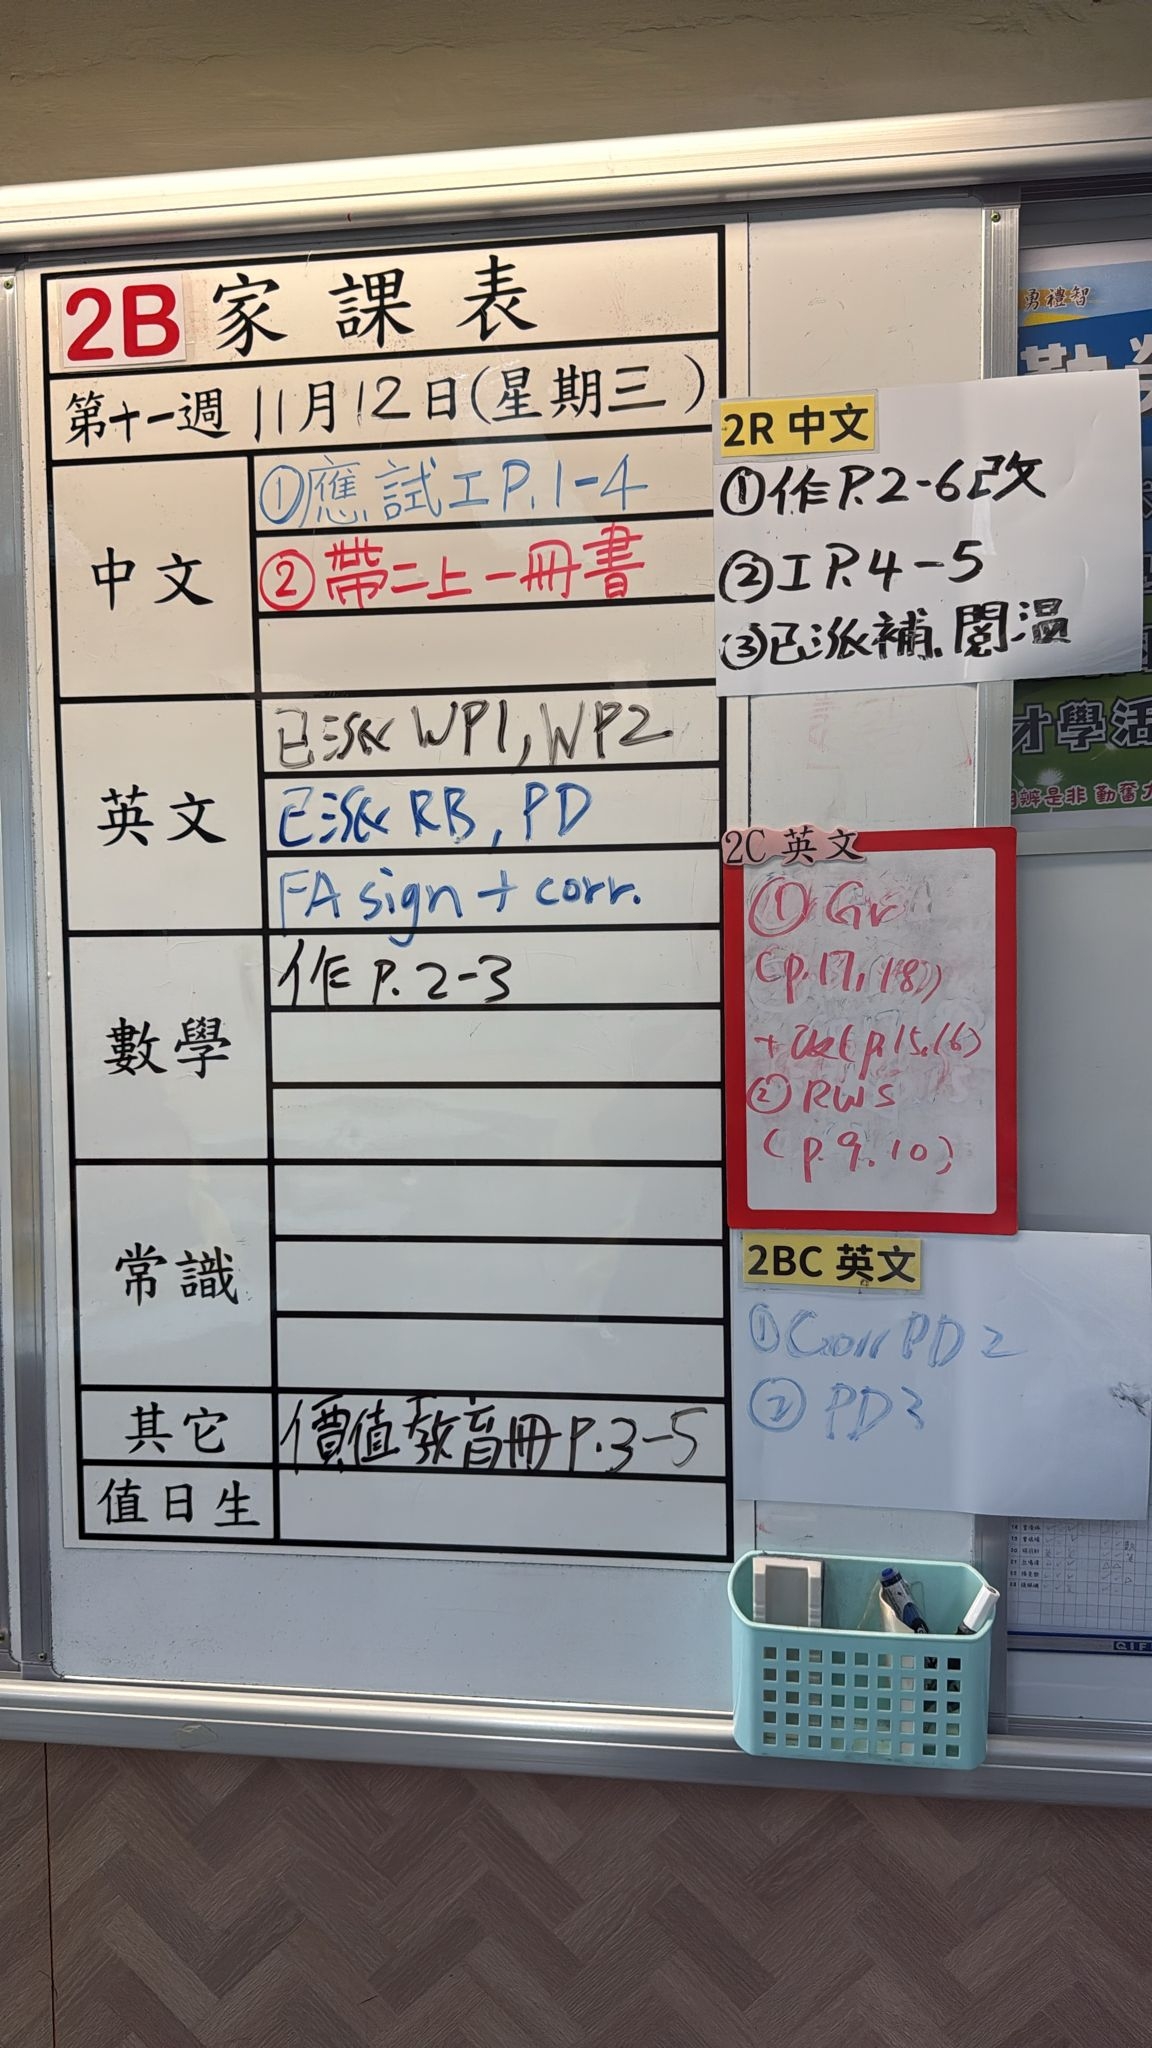 2B 家課表
第十一週 11月12日(星期三)
中文
①應試工P.1-4
②帶二上一冊書
英文
已派 WP1, WP2
已派 RB, PD
FA sign + corr.
數學
作 P. 2-3
常識
其它
價值教育冊 P.3-5
值日生
2R 中文
①作P.2-6改
②工P.4-5
③已派補、閱温
2C 英文
① Gr
(p.17, 18)
+ (p.15.16)
② RWS
(p.9.10)
2BC 英文
① Corr PD 2
② PD3
勇禮智
才學活
明辨是非 勤奮